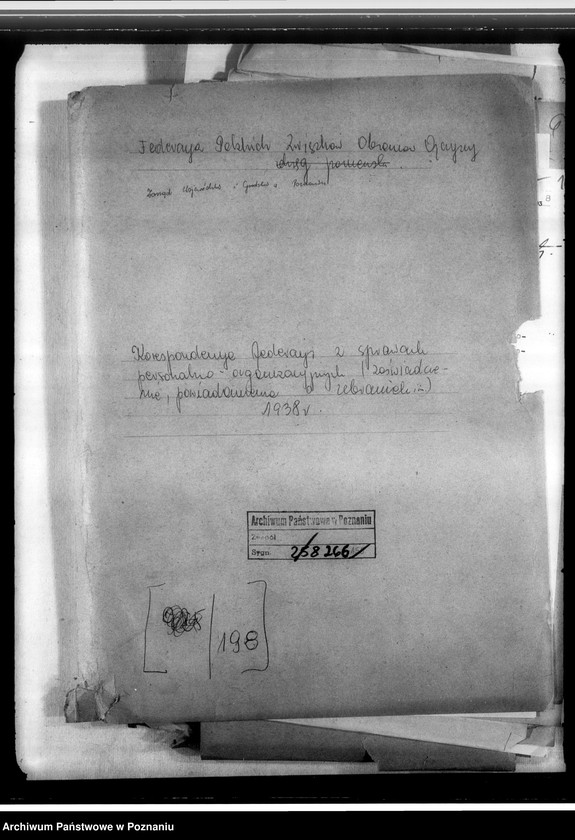 Federacja Polskich Związków Obrony Ojczyzny
okręg pomorski
Zarząd Wojewódzki i Grodzki w Poznaniu
Korespondencja Federacji z sprawach
personalno-organizacyjnych (zaświadcze-
nie, powiadomienia o zebraniach i in)
1938 r.
Archiwum Państwowe w Poznaniu
Zespół
Sygn. 266
198
Archiwum Państwowe w Poznaniu